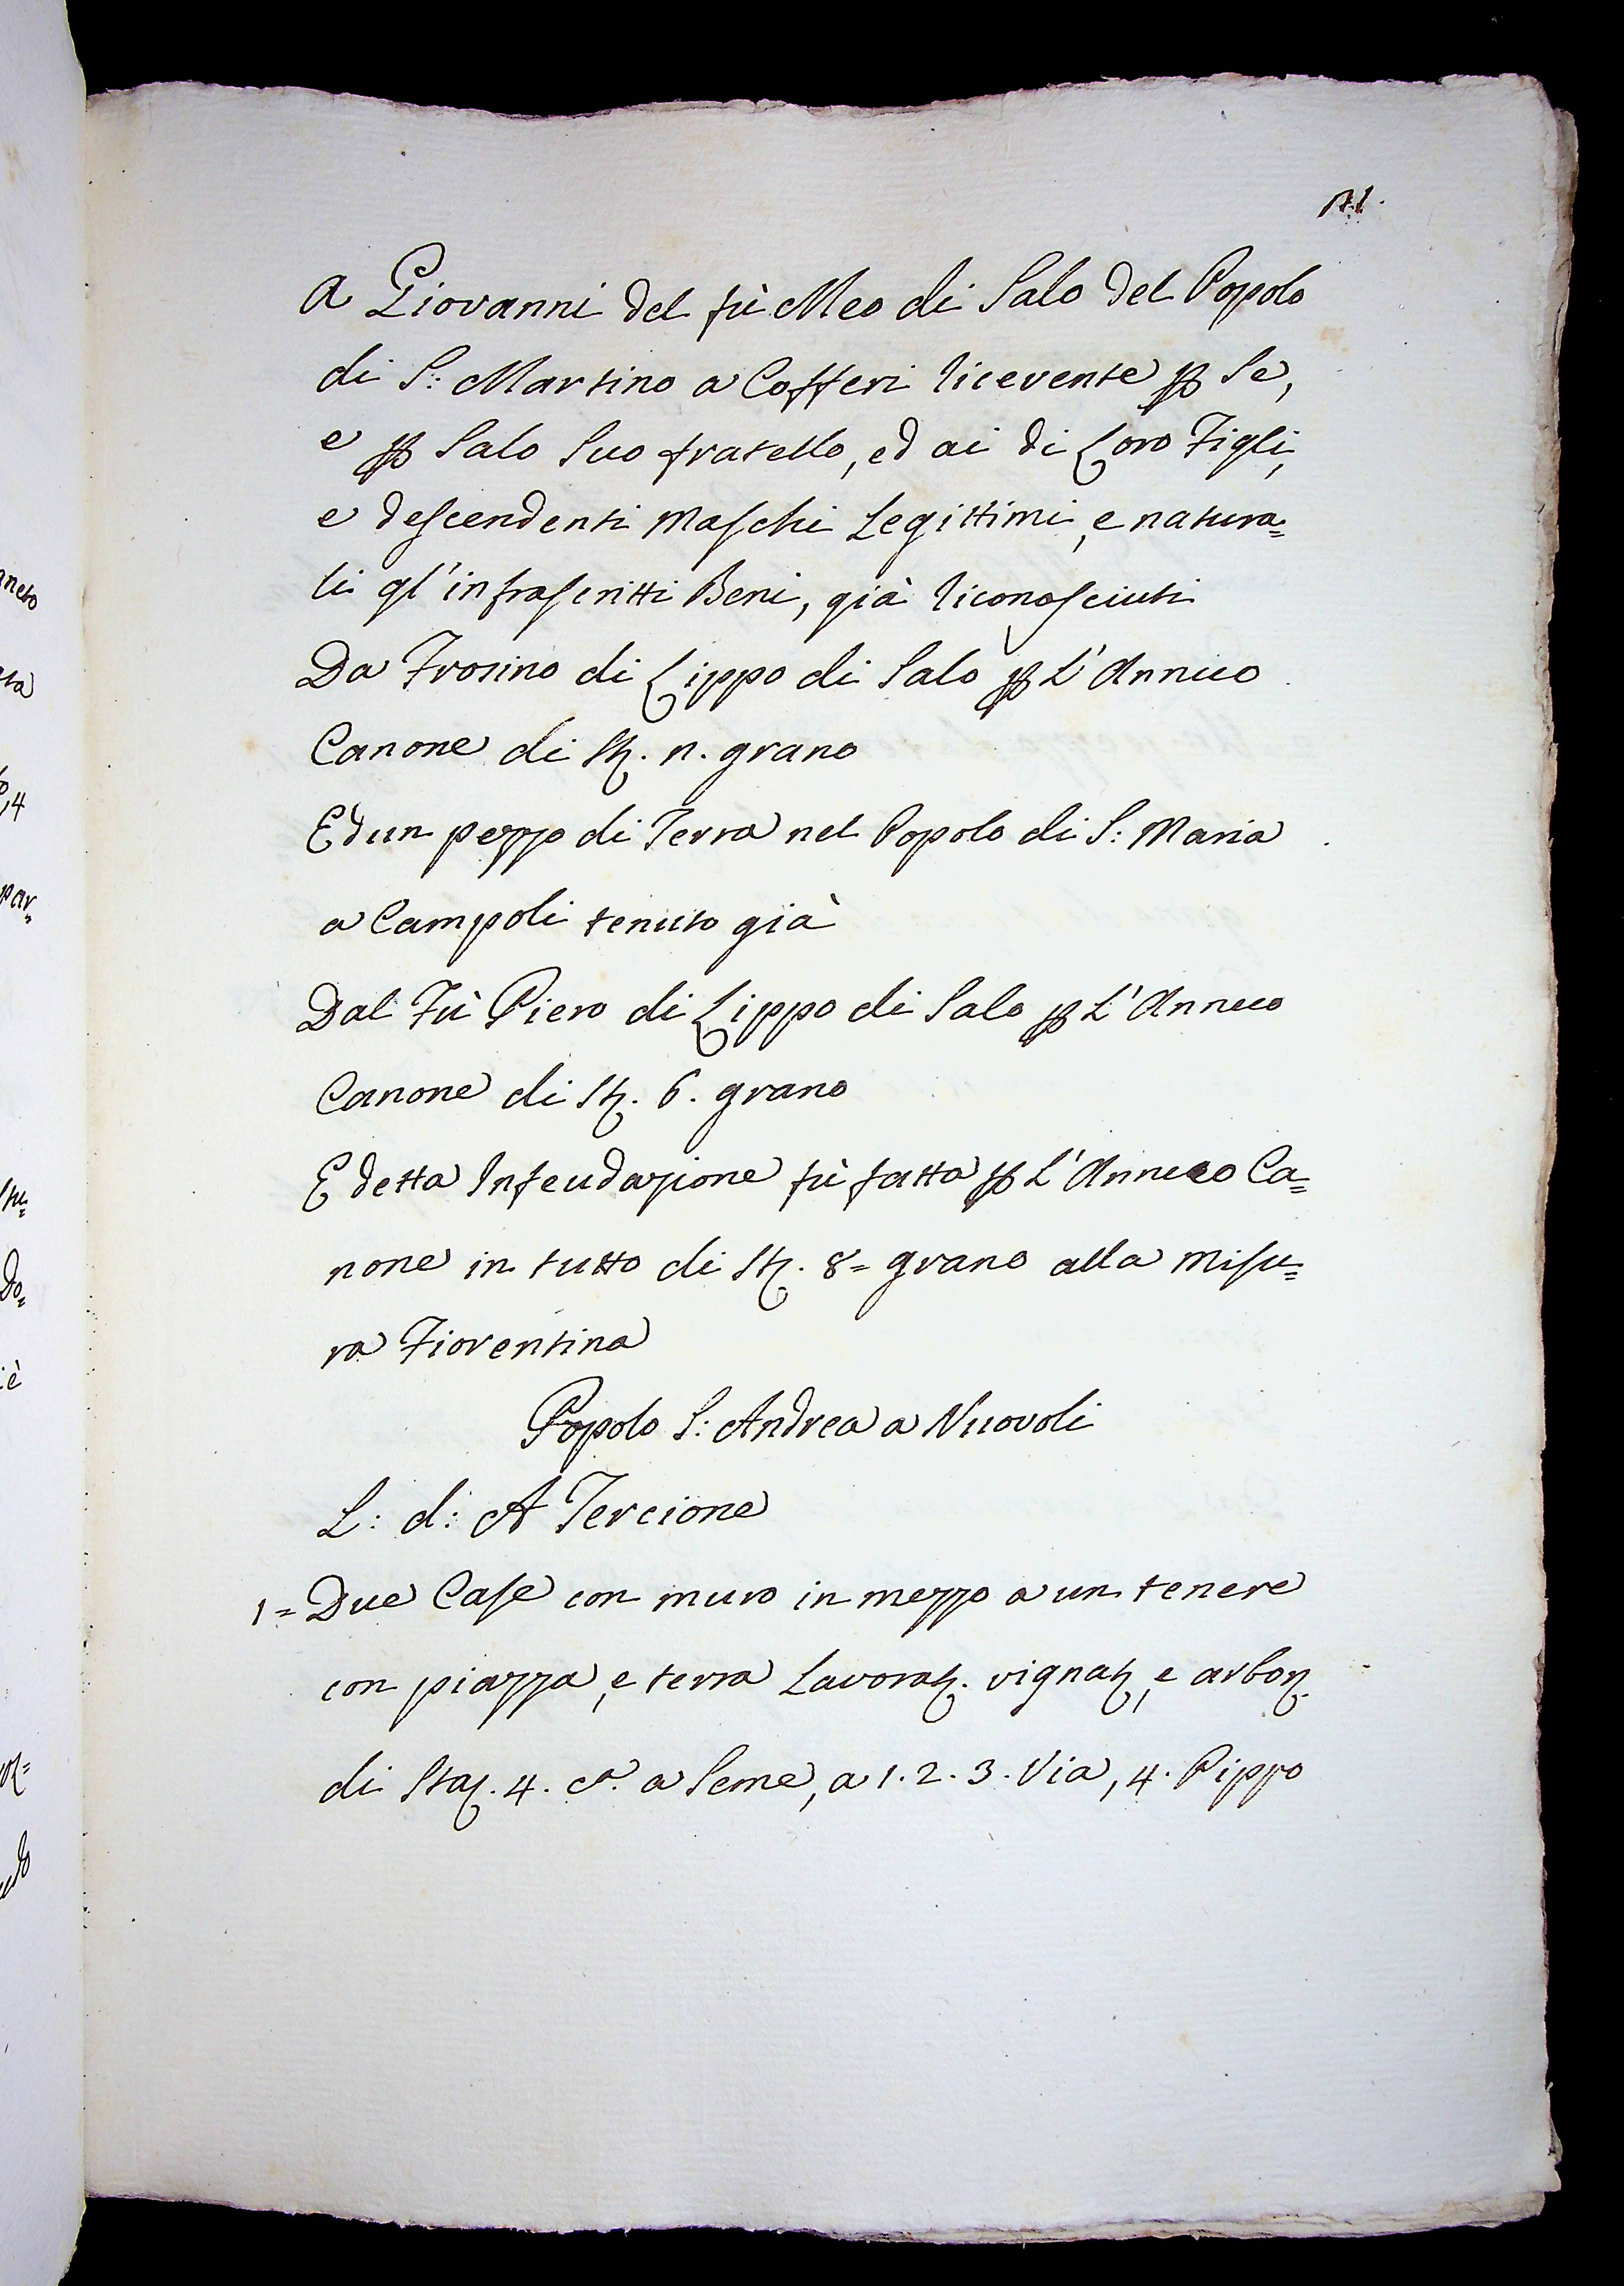 A Giovanni del fù Meo di Salo del Popolo
di S: Martino a Cofferi ricevente ꝑ Se,
e ꝑ Salo Suo fratello, ed ai di Loro Figli,
e descendenti Maschi Legittimi, e natura=
li gl'infrascritti Beni, già riconosciuti
Da Frosino di Lippo di Salo ꝑ L'Annuo
Canone di St. n. grano
Ed un pezzo di Terra nel Popolo di S: Maria
a Campoli tenuto già
Dal Fù Piero di Lippo di Salo ꝑ L'Annuo
Canone di St. 6. grano
E detta Infeudazione fù fatta ꝑ L'Annuo Ca=
none in tutto di St. 8= grano alla Misu=
ra Fiorentina
Popolo S: Andrea a Nuovoli
L: d: A Tercione
1= Due Case con muro in mezzo a un tenere
con piazza, e terra Lavorat. vignat, e arbor.
di Sta. 4. ca. a Seme, a 1. 2. 3. Via, 4. Pippo